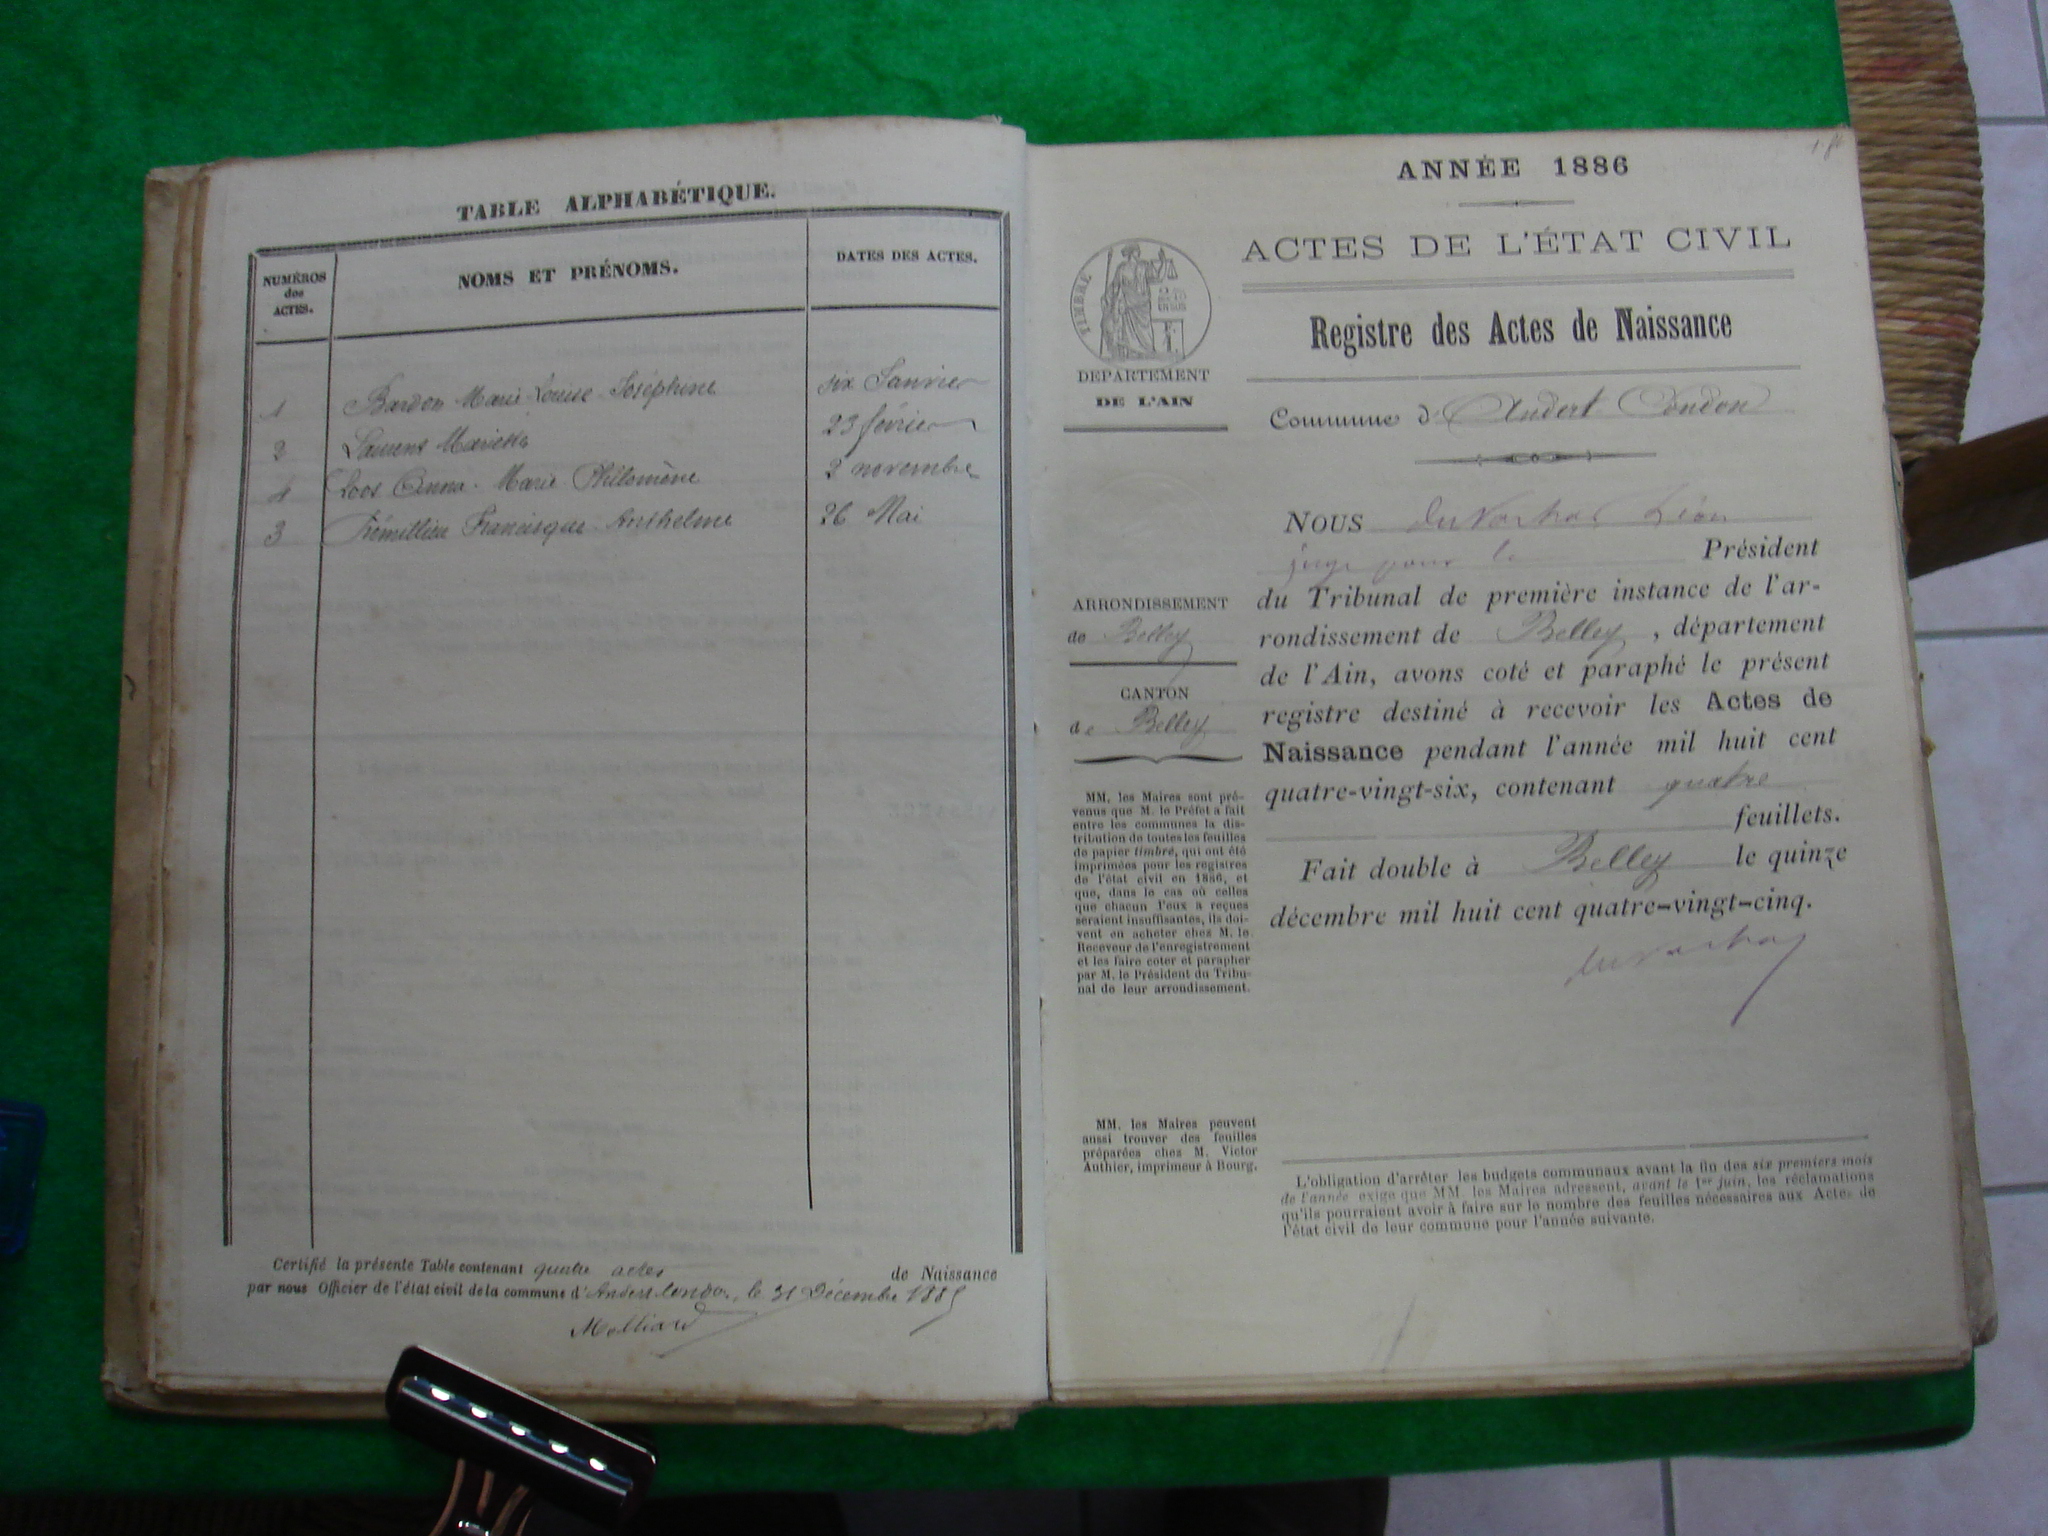 TABLE ALPHABÉTIQUE.
NUMÉROS
des
ACTES.
NOMS ET PRÉNOMS.
DATES DES ACTES.
1 Bardon Marie-Louise-Joséphine six Janvier
2 Laurent Marietta 23 février
4 Loos Anna-Marie Philomène 2 novembre
3 Trémillieu Francisque-Anthelme 26 Mai
Certifié la présente Table contenant quatre actes de Naissance
par nous Officier de l'état civil de la commune d'Andert-Condon, le 31 Décembre 1885
Molliard
ANNÉE 1886
ACTES DE L'ÉTAT CIVIL
Registre des Actes de Naissance
Commune d'Andert-Condon
TIMBRE
DEPARTEMENT
DE L'AIN
ARRONDISSEMENT
de Belley
CANTON
de Belley
MM. les Maires sont pré-
venus que M. le Préfet a fait
entre les communes la dis-
tribution de toutes les feuilles
de papier timbré, qui ont été
imprimées pour les registres
de l'état civil en 1886, et
que, dans le cas où celles
que chacun d'eux a reçues
seraient insuffisantes, ils doi-
vent en acheter chez M. le
Receveur de l'enregistrement
et les faire coter et parapher
par M. le Président du Tribu-
nal de leur arrondissement.
MM. les Maires peuvent
aussi trouver des feuilles
préparées chez M. Victor
Authier, imprimeur à Bourg.
NOUS Léon
juge pour le Président
du Tribunal de première instance de l'ar-
rondissement de Belley, département
de l'Ain, avons coté et paraphé le présent
registre destiné à recevoir les Actes de
Naissance pendant l'année mil huit cent
quatre-vingt-six, contenant quatre
feuillets.
Fait double à Belley le quinze
décembre mil huit cent quatre-vingt-cinq.
L'obligation d'arrêter les budgets communaux avant la fin des six premiers mois
de l'année exige que MM. les Maires adressent, avant le 1er juin, les réclamations
qu'ils pourraient avoir à faire sur le nombre des feuilles nécessaires aux Actes de
l'état civil de leur commune pour l'année suivante.